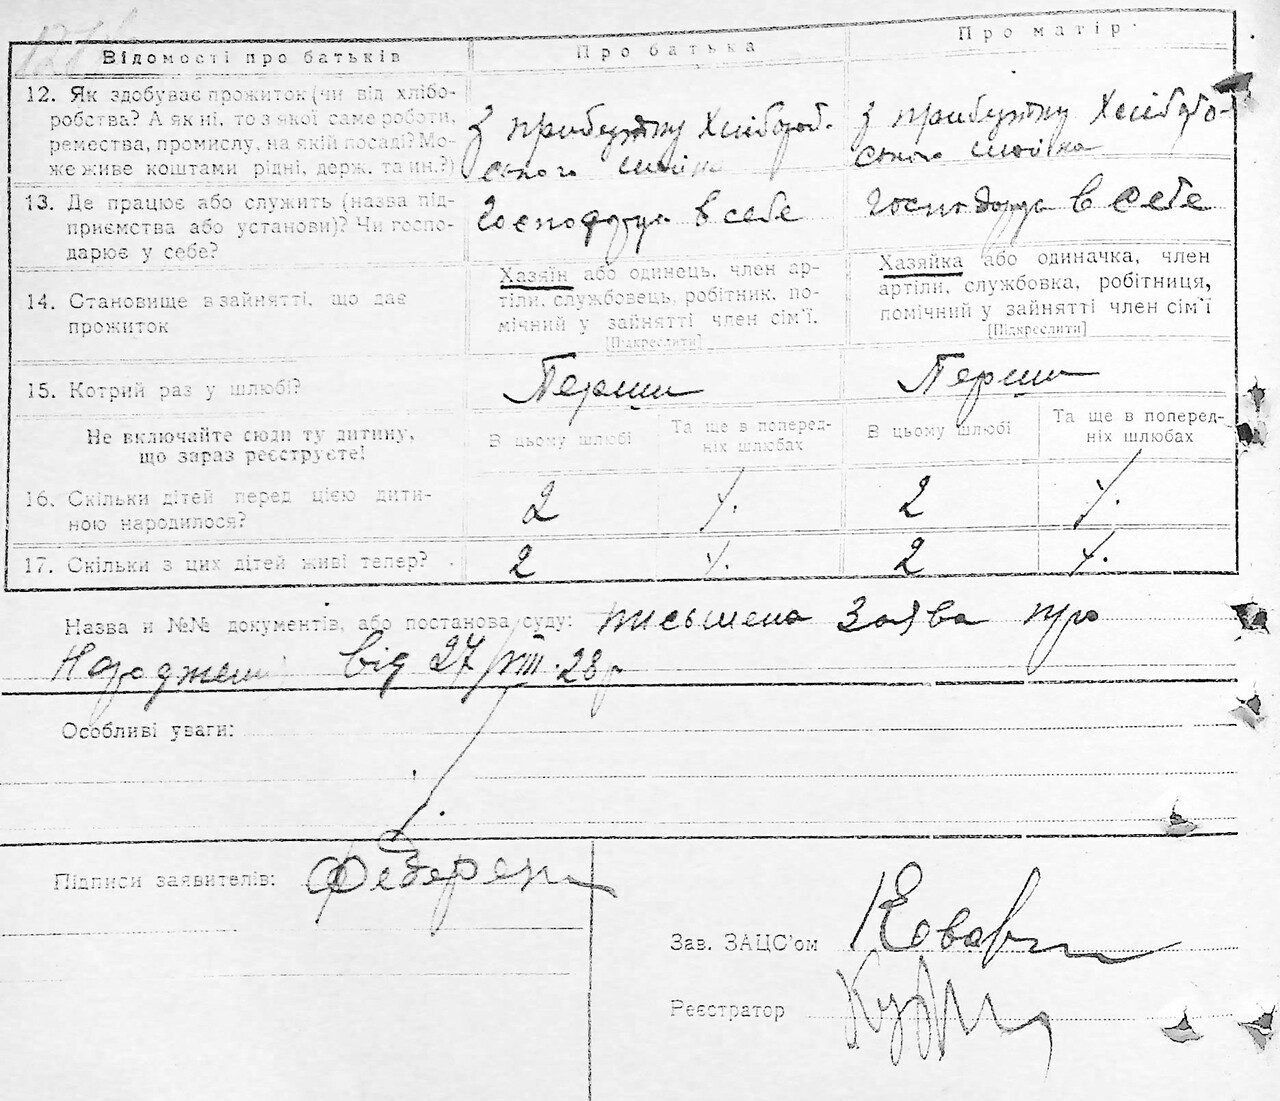 Відомості про батьків
Про батька
Про матір
12. Як здобуває прожиток (чи від хлібо-
робства? А як ні, то з якої саме роботи,
ремества, промислу, на якій посаді? Мо-
же живе коштами рідні, держ. та ин.?)
з прибутку Хлібороб-
ського
з прибутку Хліборо-
ського
13. Де працює або служить (назва під-
приємства або установи)? Чи госпо-
дарює у себе?
Господарує в себе
Господарує в себе
14. Становище в зайнятті, що дає
прожиток
Хазяїн або одинець, член ар-
тіли, службовець, робітник, по-
мічний у зайнятті член сім'ї.
[Підкреслити]
Хазяйка або одиначка, член
артіли, службовка, робітниця,
помічний у зайнятті член сім'ї
[Підкреслити]
15. Котрий раз у шлюбі?
Перший
Перший
Не включайте сюди ту дитину,
що зараз реєструєте!
В цьому шлюбі
Та ще в поперед-
ніх шлюбах
В цьому шлюбі
Та ще в поперед-
ніх шлюбах
16. Скільки дітей перед цією дити-
ною народилося?
2 /. 2 /.
17. Скільки з цих дітей живі тепер?
2 /. 2 /.
Назва й №№ документів, або постанова суду: письмена Заява про
Народжен від 27/VIII.28 р
Особливі уваги:
Підписи заявителів:
Зав. ЗАЦС'ом
Реєстратор